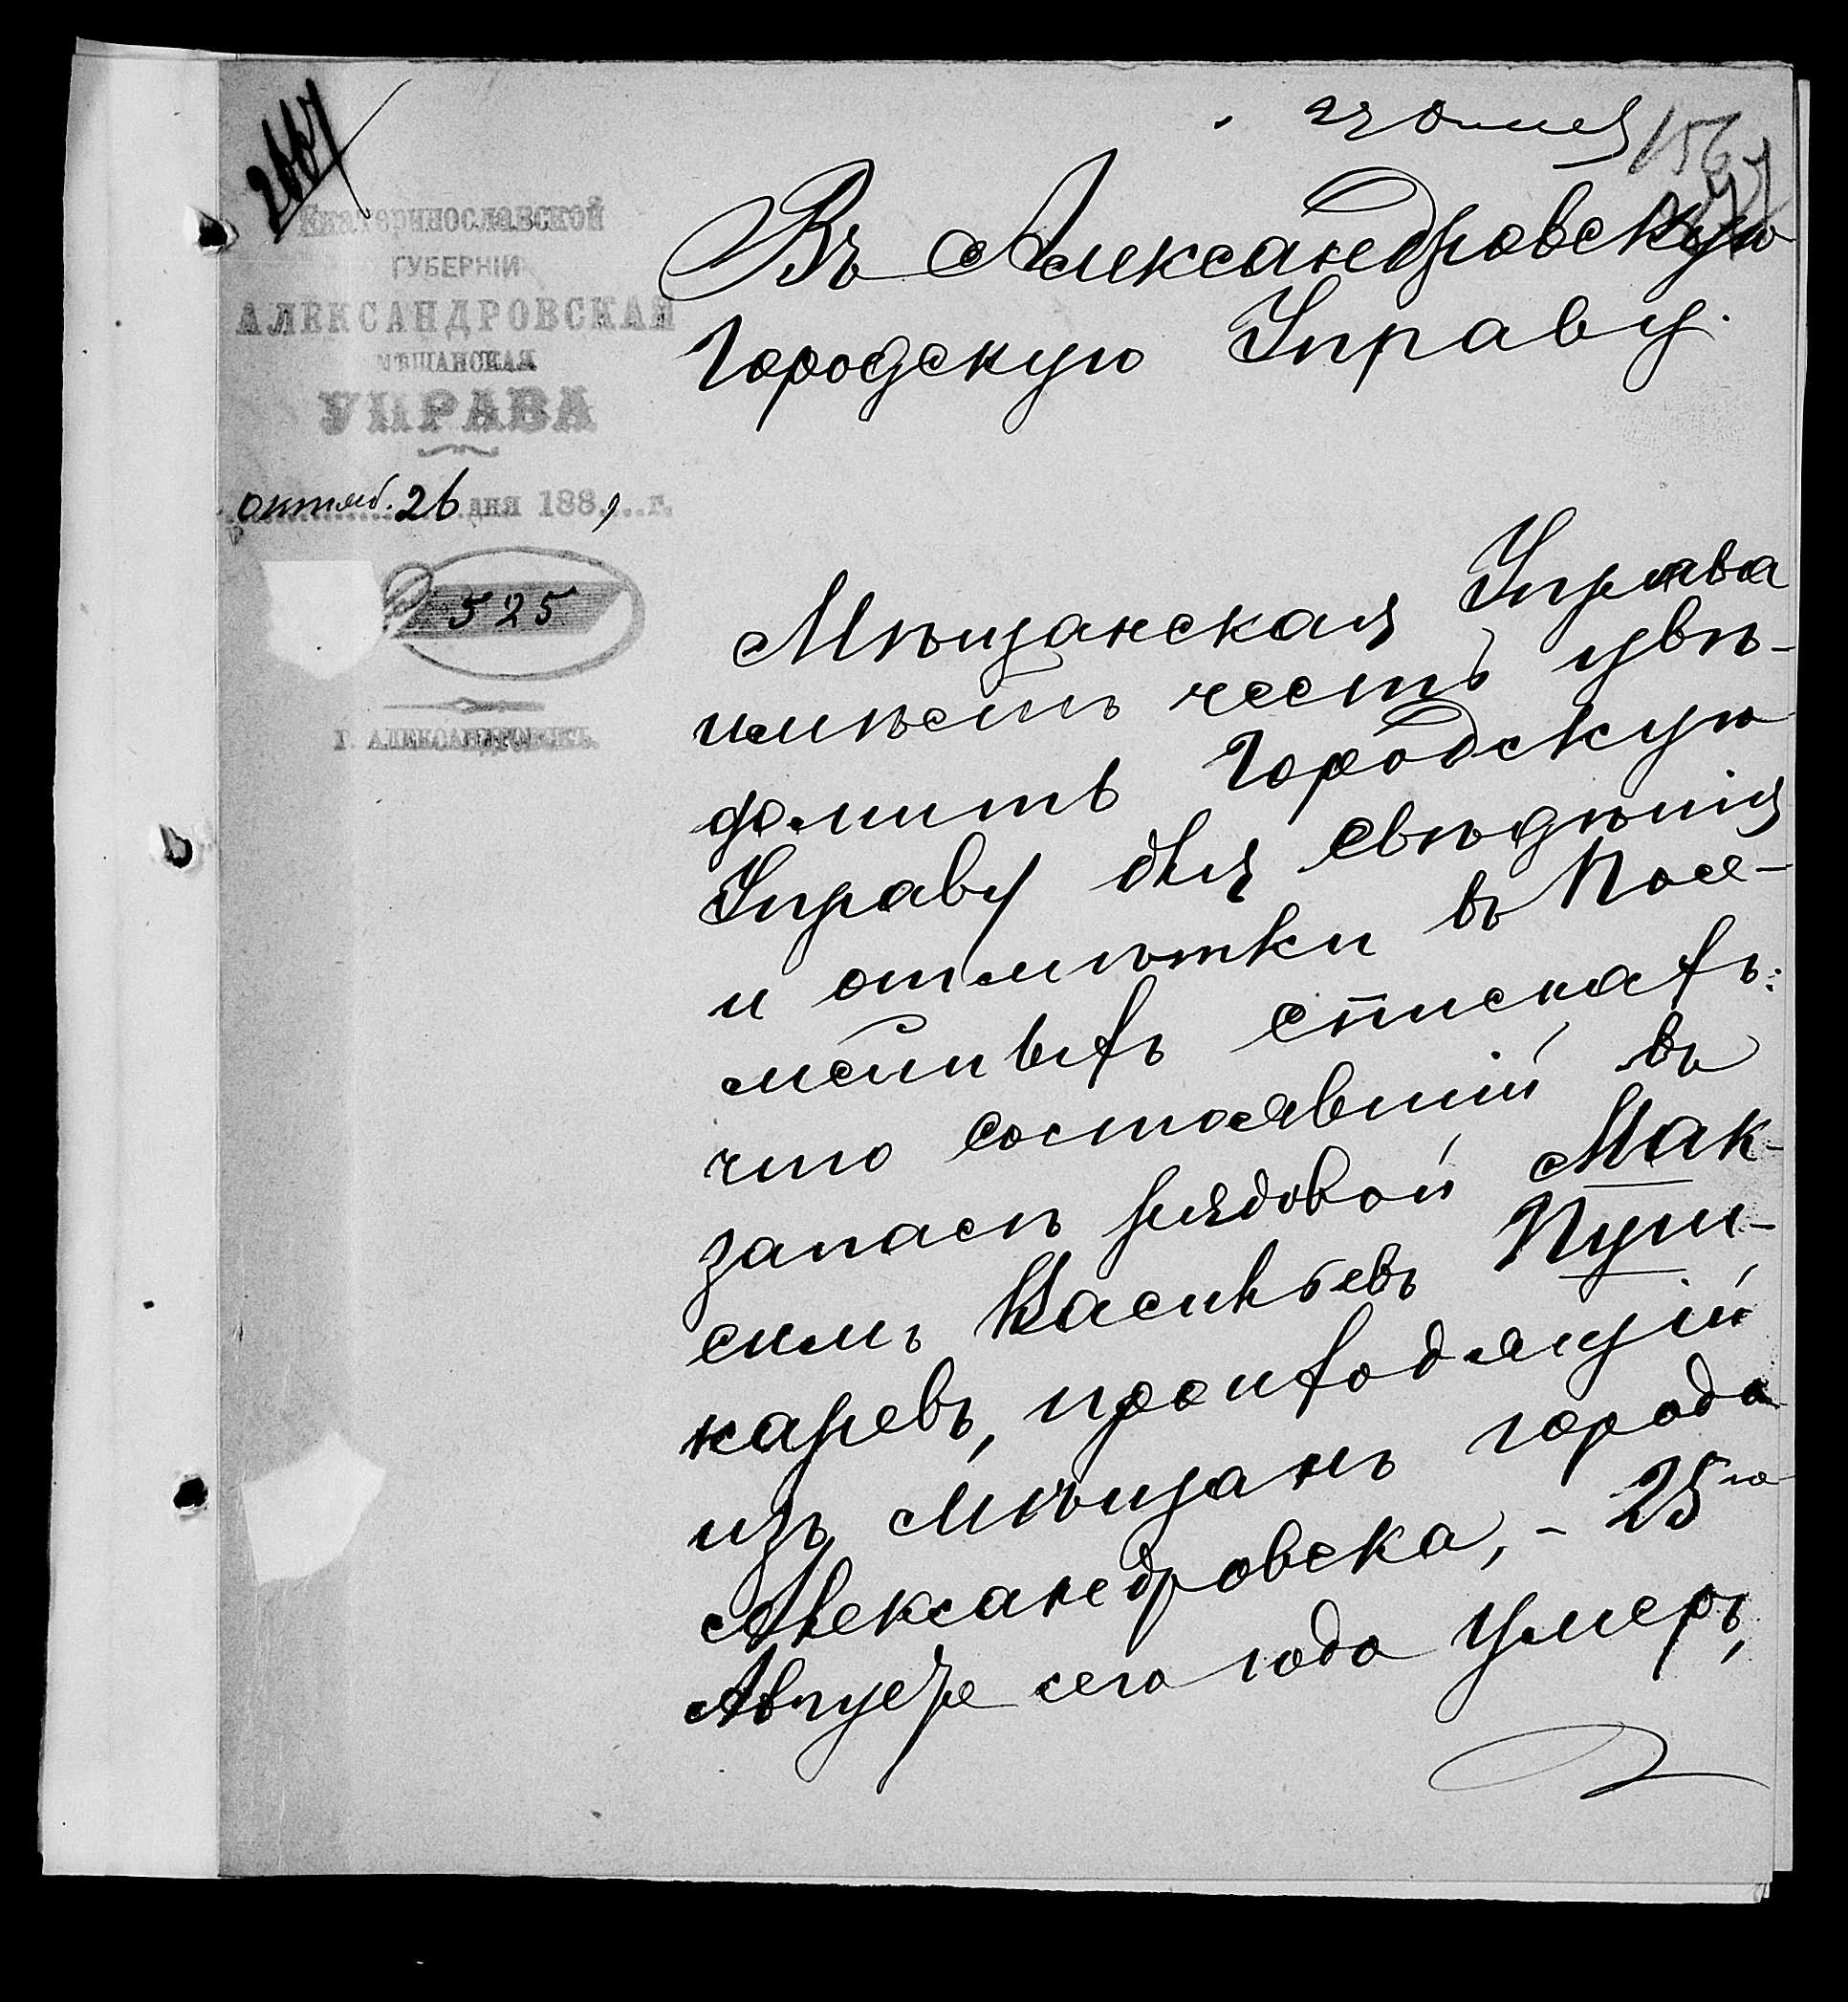 156
Екатеринославской
ГУБЕРНІИ
АЛЕКСАНДРОВСКАЯ
МѢЩАНСКАЯ
УПРАВА
октяб. 26 дня 188 г.
525
Г. АЛЕКСАНДРОВСКЪ.
Въ Александровскую
Городскую Управу.
Мѣщанская Управа
имѣетъ честь увѣ-
домить Городскую
Управу для свѣдѣнія
и отмѣтки въ Посе-
мейныхъ спискахъ:
что состоявшій въ
запасѣ рядовой Мак-
симъ Васильевъ Пуш-
каревъ, происходящій
изъ Мѣщанъ города
Александровска, - 25го
Августа сего года Умеръ,